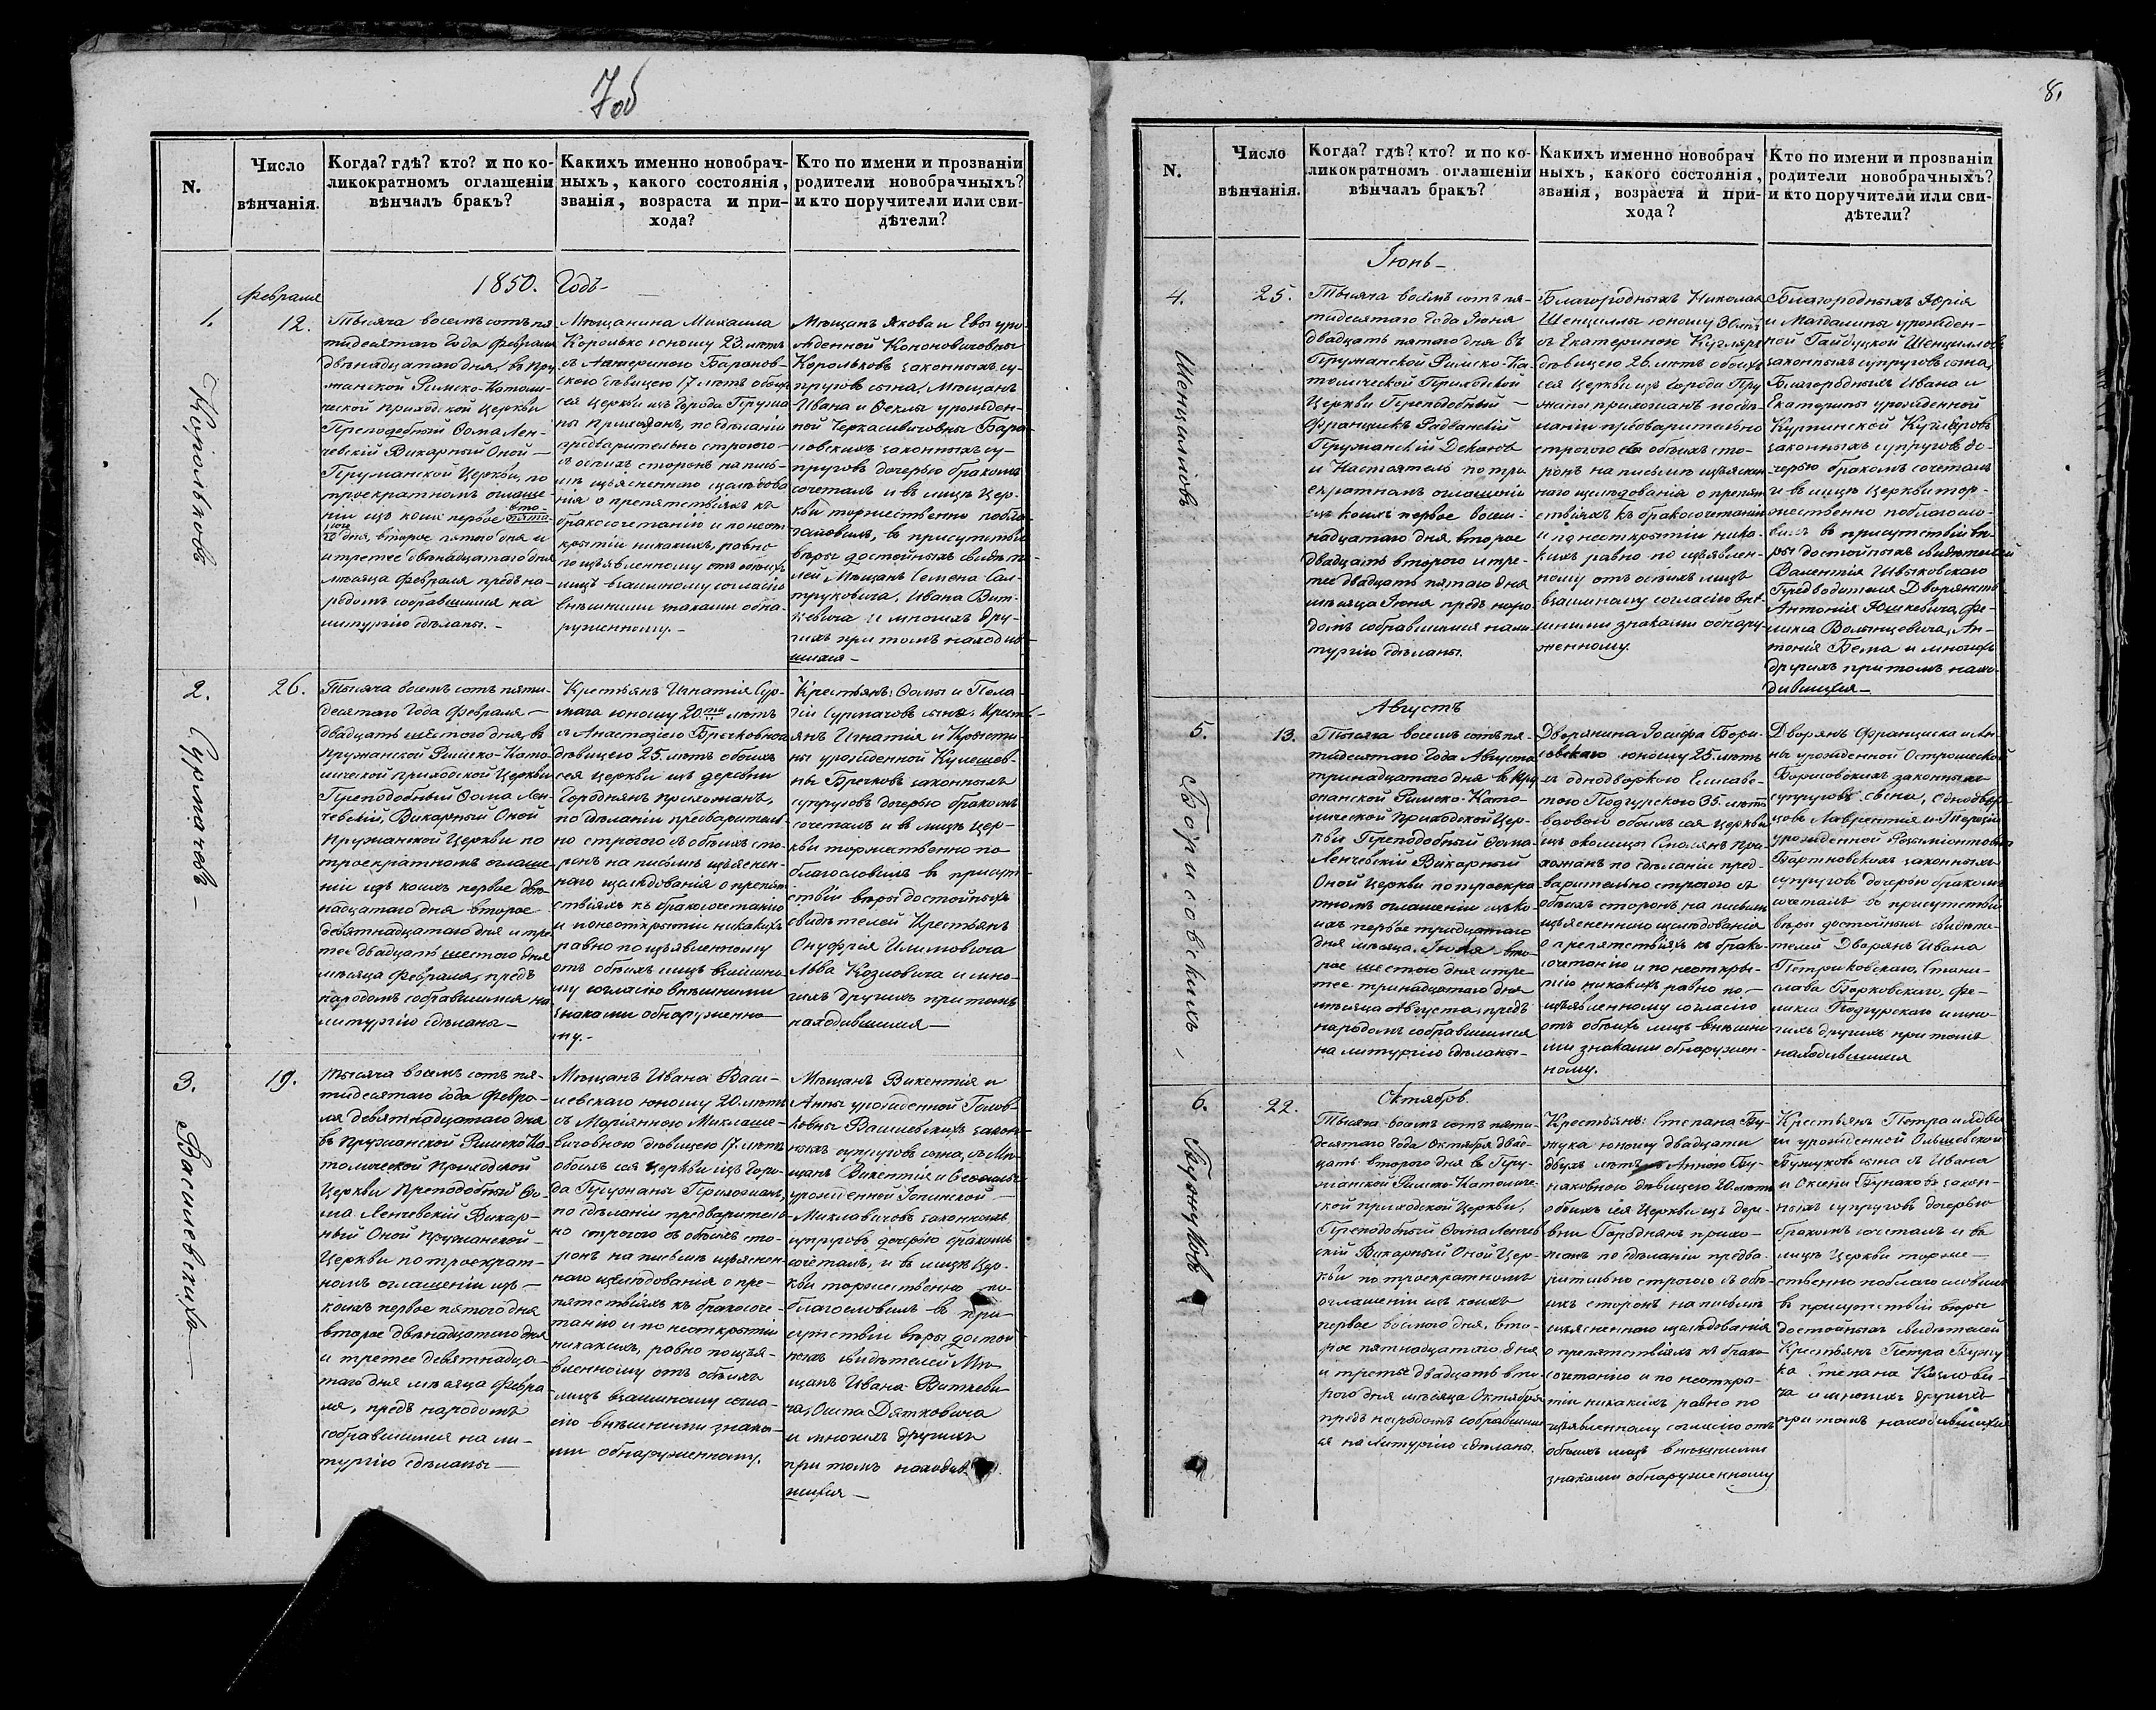 7об
N.
Число
вѣнчанія.
Когда? гдѣ? кто? и по ко-
ликократномъ оглашеніи
вѣнчалъ бракъ?
Какихъ именно новобрач-
ныхъ, какого состоянія,
званія, возраста и при-
хода?
Кто по имени и прозваніи
родители новобрачныхъ?
и кто поручители или сви-
дѣтели?
1850. Годъ
Февраля
1.
12.
Корольковъ
Тысяча восемъ сотъ пя-
тидесятого Года Февраля
двѣнадцатаго дня, въ Пру-
жанской Римско-Католи-
ческой приходской Церкви
Преподобный Ѳома Лен-
чевскій Викарный Оной
Пружанской Церкви, по
троекратномъ оглаше-
ніи изъ коихъ первое
дня, второе пятого дня и
третее двѣнадцатаго дня
мѣсяца Февраля предъ на-
родомъ собравшимся на
литургію сдѣланы.
Мѣщанина Михаила
Королько юношу 23. лѣтъ
съ Катериною Баронов-
скою дѣвицею 17 лѣтъ обоихъ
сея Церкви изъ Города Пружа-
ны прихожанъ, по сдѣланіи
предварительно строгого
съ обоихъ сторонъ на пись-
мѣ изъясненного изслѣдова
нія о препятствіяхъ къ
бракосочетанію и по неот-
крытіи никакихъ, равно
по изъявленному отъ обоихъ
лицъ взаимному согласію
внѣшними знаками обна-
руженному.
Мѣщанъ Якова и Евы уро-
жденной Кононовичовны
Корольковъ законныхъ су-
пруговъ сына, Мѣщанъ
Ивана и Ѳеклы урожден-
ной Черкасевичовны Баро-
новскихъ законныхъ су-
пруговъ дочерью бракомъ
сочеталъ и въ лицѣ Цер-
кви торжественно побла-
гословилъ, въ присутствіи
вѣры достойныхъ свидѣте-
лей Мѣщанъ Семена Сал-
пруковича, Ивана Вит-
кевича и многихъ дру-
гихъ при томъ находив-
шихся
2.
26.
Сурмачевъ
Тысяча восемъ сотъ пяти-
десятого Года Февраля
двадцать шестого дня, въ
Пружанской Римско-Като-
лической приходской Церкви
Преподобный Ѳома Лен-
чевскій, Викарный Оной
Пружанской Церкви по
троекратномъ оглаше-
ніи изъ коихъ первое двѣ-
надцатаго дня второе
девятнадцатаго дня и тре-
тее двадцать шестого дня
мѣсяца Февраля, предъ
народомъ собравшимся на
литургію сдѣланы
Крестьянъ Игнатія Сур-
мача юношу 20.ти лѣтъ
съ Анастазіею Бречковною
дѣвицею 25. лѣтъ обоихъ
сея Церкви изъ деревни
Городнянъ прихожанъ,
по сдѣланіи предваритель-
но строгого съ обоихъ сто-
ронъ на письмѣ изъяснен-
ного изслѣдованія о препят-
ствіяхъ къ бракосочетанію
и понеоткрытіи никакихъ
равно по изъявленному
отъ обоихъ лицъ взаимно-
му согласію внѣшними
знаками обнаруженно-
му.
Крестьянъ: Ѳомы и Пела-
гіи Сурмачовъ сына, Кресть-
янъ Игнатія и Крысти-
ны урожденной Кулешев-
ны Бречковъ законныхъ
супруговъ дочерью бракомъ
сочеталъ и въ лицѣ Цер-
кви торжественно по
благословилъ въ присут-
ствіи вѣры достойныхъ
свидѣтелей Крестьянъ
Онуфрія Климовича
Льва Козловича и мно-
гихъ другихъ притомъ
находившихся
3.
19.
Василевскихъ
Тысяча восемъ сотъ пя-
тидесятаго Года Февра-
ля девятнадцатаго дня
въ Пружанской Римско Ка-
толической Приходской
Церкви Преподобный Ѳо-
ма Ленчевскій Викар-
ный Оной Пружанской
Церкви по троекрат-
номъ оглашеніи изъ
коихъ первое пятого дня
второе двѣнадцатого дня
и третее девятнадца-
таго дня мѣсяца Февра
ля, предъ народомъ
собравшимся на ли-
тургію сдѣланы
Мѣщанъ Ивана Васи-
левскаго юношу 20. лѣтъ
съ Маріянною Миклаше-
вичовною дѣвицею 17. лѣтъ
обоихъ сея Церкви изъ Горо-
да Пружаны Прихожанъ,
по сдѣланіи предваритель-
но строгого съ обоихъ сто-
ронъ на письмѣ изъяснен
ного изслѣдованія о пре-
пятствіяхъ къ бракосоче-
танію и по неоткрытіи
никакихъ, равно по изъя-
вленному отъ обоихъ
лицъ взаимному согла-
сію внѣшними знака-
ми обнаруженному.
Мѣщанъ Викентія и
Анны урожденной Голов-
ковны Василевскихъ закон-
ныхъ супруговъ сына, съ Мѣ-
щанъ Викентія и
урожденной
законныхъ
супруговъ дочерію бракомъ
сочеталъ, и въ лицѣ Цер-
кви торжественно по-
благословилъ въ при-
сутствіи вѣры достой
ныхъ свидѣтелей Мѣ-
щанъ Ивана Виткеви
ча, Осипа Дятковича
и многихъ другихъ
при томъ находив-
шихся
8.
N.
Число
вѣнчанія.
Когда? гдѣ? кто? и по ко-
ликократномъ оглашеніи
вѣнчалъ бракъ?
Какихъ именно новобрач
ныхъ, какого состоянія,
званія, возраста и при-
хода?
Кто по имени и прозваніи
родители новобрачныхъ?
и кто поручители или сви-
дѣтели?
Іюнь
4.
25.
Шенцилловъ
Тысяча восемъ сотъ пя-
тидесятаго Года Іюня
двадцать пятого дня въ
Пружанской Римско-Ка-
толической Приходской
Церкви Преподобный
Францишкъ Радванскій
Пружанскій Деканъ
и Настоятель по тро-
екратномъ оглашеніи
изъ коихъ первое восем-
надцатаго дня второе
двадцать второго и тре-
тее двадцать пятого дня
мѣсяца Іюня предъ наро-
домъ собравшимся на ли-
тургію сдѣланы.
Благородныхъ Николая
Шенциллы юношу 30 лѣтъ
съ Екатериною Кугляръ
дѣвицею 26. лѣтъ обоихъ
сея Церкви изъ Города Пру
жаны прихожанъ по сдѣ-
ланіи предварительно
строгого съ обоихъ сто-
ронъ на письмѣ изъяснен
ного изслѣдованія о препят
ствіяхъ къ бракосочетанію
и по неоткрытіи ника-
кихъ равно по изъявлен-
ному отъ обоихъ лицъ
взаимному согласію внѣ-
шними знаками обнару-
женному.
Благородныхъ Юрія
и Магдалины урожден-
ной Гайдуцкой Шенцилловъ
законныхъ супруговъ сына,
Благородныхъ Ивана и
Екатерины урожденной
Курпинской Кугляровъ
законныхъ супруговъ до-
черью бракомъ сочеталъ
и въ лицѣ Церкви тор-
жественно поблагосло-
вилъ въ присутствіи вѣ-
ры достойныхъ свидѣтелей
Валентія Швыковскаго
Предводителя Дворянства
Антонія Юшкевича, Фе-
ликса Волынцевича, Ан-
тонія Бема и многихъ
другихъ притомъ нахо
дившихся
Августъ
5.
13.
Борисовскихъ
Тысяча восемъ сотъ пя-
тидесятаго Года Августа
тринадцатаго дня въ Пру
жанской Римско-Като-
лической Приходской Цер-
кви Преподобный Ѳома
Ленчевскій Викарный
Оной Церкви по троекра
тномъ оглашеніи изъ ко-
ихъ первое тридцатаго
дня мѣсяца Іюля вто-
рое шестого дня и тре-
тее тринадцатаго дня
мѣсяца Августа, предъ
народомъ собравшимся
на литургію сдѣланы
Дворянина Іосифа Бори-
совскаго юношу 25. лѣтъ
съ однодворкою Елисаве-
тою Подгурскою 35. лѣтъ
вдовою обоихъ сея Церкви
изъ околицы Смолянъ при
хожанъ по сдѣланіи пред-
варительно строгого съ
обоихъ сторонъ на письмѣ
изъясненного изслѣдованія
о препятствіяхъ къ брако-
сочетанію и по неоткры-
тію никакихъ равно по
изъявленному согласію
отъ обоихъ лицъ внѣшни
ми знаками обнаружен-
ному.
Дворянъ Франциска и Ан
ны урожденной Острошевской
Борисовскихъ законныхъ
супруговъ сына, Однодвор
цовъ Лаврентія и Терезіи
урожденной
Бартновскихъ законныхъ
супруговъ дочерью бракомъ
сочеталъ въ присутствіи
вѣры достойныхъ свидѣте-
телей Дворянъ Ивана
Петриковскаго, Стани-
слава Борковскаго, Фе-
ликса Подгурскаго и мно-
гихъ другихъ при томъ
находившихся
Октябрь.
6.
22.
Бужуковъ
Тысяча восемъ сотъ пяти
десятаго Года Октября двад-
цать второго дня въ Пру-
жанской Римско-Католиче-
ской приходской Церкви,
Преподобный Ѳома Ленчев
скій Викарный Оной Цер-
кви по троекратномъ
оглашеніи изъ коихъ
первое восмого дня, вто-
рое пятнадцатаго дня
и третее двадцать вто
рого дня мѣсяца Октября
предъ народомъ собравшим
ся на Литургію сдѣланы.
Крестьянъ: Степана Бу-
жука юношу двадцати
двухъ лѣтъ съ Анною Бу-
няковною дѣвицею 20. лѣтъ
обоихъ сея Церкви изъ дере-
вни Городнянъ прихо-
жанъ по сдѣланіи предва
рительно строгого съ обо-
ихъ сторонъ на письмѣ
изъясненного изслѣдованія
о препятствіяхъ къ брако
сочетанію и по неоткры-
тіи никакихъ равно по
изъявленному согласію отъ
обоихъ лицъ внѣшними
знаками обнаруженному
Крестьянъ Петра и Ядви
ги урожденной Ольшевской
Бужуковъ сына съ Ивана
и Оксени Буняковъ закон-
ныхъ супруговъ дочерью
бракомъ сочеталъ и въ
лицѣ Церкви торже-
ственно поблагословилъ
въ присутствіи вѣры
достойныхъ свидѣтелей
Крестьянъ Петра Бужу
ка Степана Козлови-
ча и многихъ другихъ
при томъ находившихся